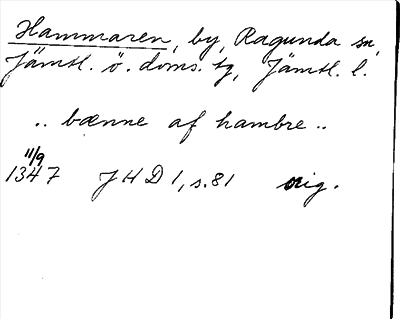 Hammaren, by, Ragunda sn,
Jämtl. ö. doms. tg, Jämtl. l.
.. bænne af hambre ..
11/9
1347 JHD 1, s. 81 orig.